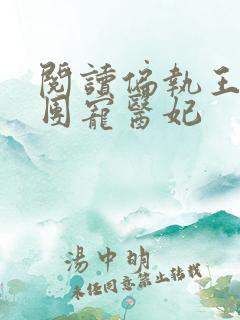 閱讀偏執王
團寵醫妃
湯中明
未經同意禁止轉載